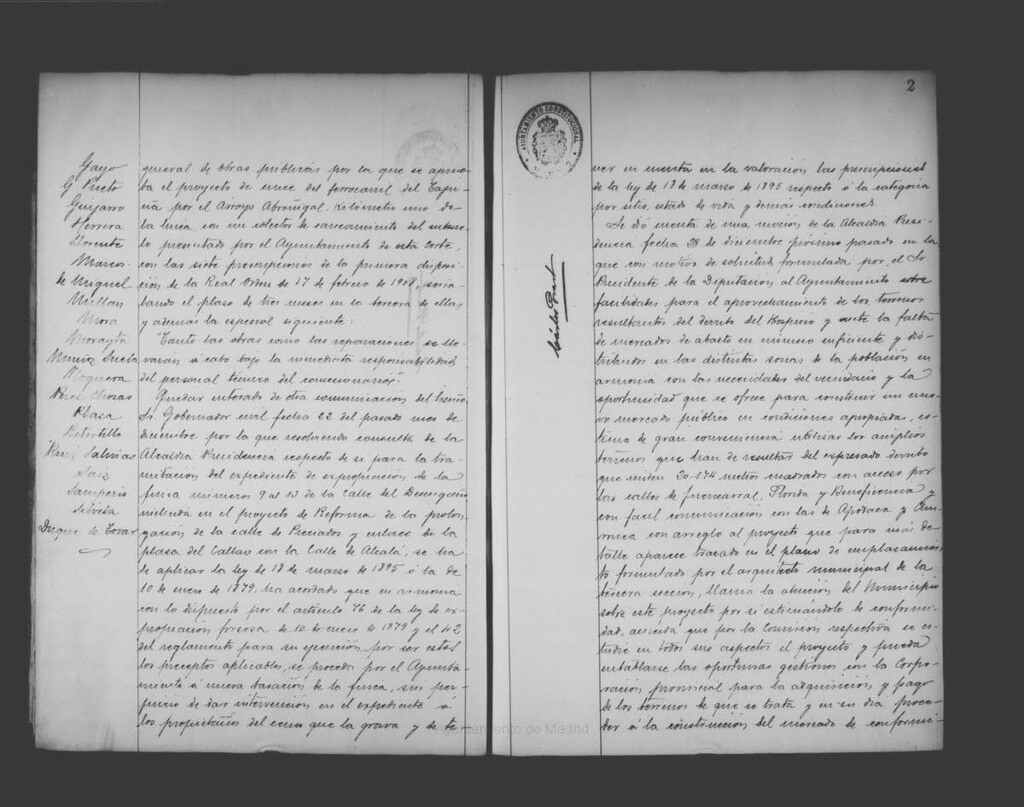 Gayo
G. Prieto
Guijarro
Herrera
Llorente
Marcos
de Miguel
Millan
Mora
Morayta
Muñiz
Noguera
Perez Chozas
Plaza
Retortillo
Ruiz Salinas
Saiz
Samperio
Silvela
Duque de Tovar
general de obras publicas por la que se aprue-
ba el proyecto de cruce del ferrocarril del Taju-
ña por el Arroyo Abroñigal, Kilómetro uno de
la linea, con un colector de saneamiento del subsue-
lo presentado por el Ayuntamiento de esta Corte,
con las siete prescripciones de la primera disposi-
ción de la Real Orden de 17 de febrero de 1908,
el plazo de tres meses en la tercera de ellas
y además la especial siguiente:
"Tanto las obras como las reparaciones se lle-
varán á cabo bajo la inmediata responsabilidad
del personal técnico del concesionario".
Quedar enterado de otra comunicacion del Excmo.
Sr. Gobernador civil fecha 22 del pasado mes de
diciembre por la que resolviendo consulta de la
Alcaldia Presidencia respecto de si para la tra-
mitación del expediente de expropiación de la
finca números 9 al 13 de la Calle del Desengaño
incluida en el proyecto de Reforma de la prolon-
gación de la calle de Preciados y enlace de la
plaza del Callao con la Calle de Alcalá, se ha
de aplicar la ley de 18 de marzo de 1895 ó la de
10 de enero de 1879, ha acordado que en armonia
con lo dispuesto por el articulo 46 de la ley de ex-
propiación forzosa de 10 de enero de 1879 y el 42
del reglamento para su ejecución por ser estos
los preceptos aplicables, se proceda por el Ayunta-
miento á nueva tasación de la finca, sin per-
juicio de dar intervención en el expediente á
los propietarios del censo que la grava y de te-
2
AYUNTAMIENTO CONSTITUCIONAL
ner en cuenta en la valoración las prescripciones
de la ley de 18 de marzo de 1895 respecto á la categoria
por sitio, estado de vida y demás condiciones.
Se dió cuenta de una moción de la Alcaldia Presi-
dencia fecha 28 de diciembre próximo pasado en la
que con motivo de solicitud formulada por el Sr.
Presidente de la Diputación al Ayuntamiento sobre
facilidades para el aprovechamiento de los terrenos
resultantes del derribo del Hospicio y vista la falta
de mercados de abasto en número suficiente y dis-
tribuidos en las distintas zonas de la población en
armonia con las necesidades del vecindario y la
oportunidad que se ofrece para construir un nue-
vo mercado público en condiciones apropiadas, es-
tima de gran conveniencia utilizar los amplios
terrenos que han de resultar del expresado derribo
que miden 20.174 metros cuadrados con acceso por
las calles de Fuencarral, Florida y Beneficencia y
con facil comunicación con las de Apodaca y Amé-
rica con arreglo al proyecto que para más de-
talle aparece trazado en el plano de emplazamien-
to formulado por el arquitecto municipal de la
tercera sección, llama la atención del Municipio
sobre este proyecto por si estimándolo de conformi-
dad, acuerda que por la Comisión respectiva se es-
tudie en todos sus aspectos el proyecto y pueda
entablarse las oportunas gestiones con la Corpo-
ración provincial para la adquisición y pago
de los terrenos de que se trata y en su dia proce-
der á la construcción del mercado de conformi-
Ayuntamiento de Madrid